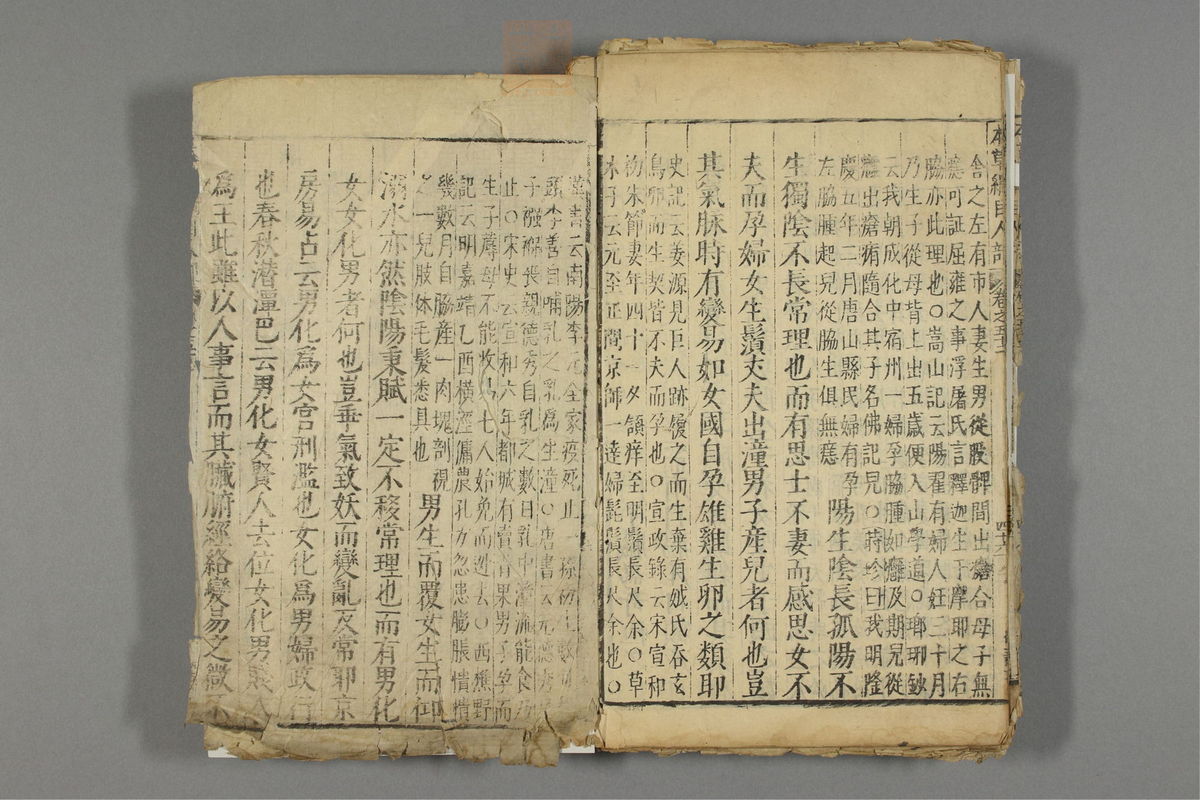 本草綱目人部 卷之五十二
舍之左有市人妻生男從股髀間出瘡合母子無
恙可証屈雍之事浮屠氏言釋迦生于摩耶之右
脇亦此理也○嵩山記云陽翟有婦人妊三十月
乃生子從母背上出五歲便入山學道○瑯琊鈔
云我朝成化中宿州一婦孕脇腫如癰及期兒從
癰出瘡痏隨合其子名佛記兒○蒋珍曰我明隆
慶五年二月唐山縣民婦有孕
左脇腫起兒從脇生俱無恙
陽生陰長孤陽不
生獨陰不長常理也而有思士不妻而感思女不
夫而孕婦女生鬚丈夫出湩男子產兒者何也豈
其氣脉時有變易如女國自孕雄雞生卵之類耶
史記云姜源見巨人跡履之而生棄有娀氏吞玄
鳥卵而生契皆不夫而孕也○宣政錄云宋宣和
初朱節妻年四十一夕頷痒至明鬚長尺余○草
木子云元至正間京師一達婦髭鬚長尺余也○
漢書云南陽李元全家疫死止一孫初生數
蒼頭李善自哺乳之乳爲生湩○唐書云元德秀
子襁褓喪親德秀自乳之數日乳中湩流能食乃
止○宋史云宣和六年都城有賣青果男子孕而
生子蓐母不能收易七人始免而逃去○西樵野
記云明嘉靖乙酉橫涇傭農孔方忽患膨脹憒憒
幾數月自脇產一肉塊剖視
之一兒肢体毛髮悉具也
男生而覆女生而仰
溺水亦然陰陽秉賦一定不移常理也而有男化
女女化男者何也豈乖氣致妖而變亂反常耶京
房易占云男化爲女宮刑濫也女化爲男婦政行
也春秋潛潭巴云男化女賢人去位女化男賤人
爲王此雖以人事言而其臟腑經絡變易之微不